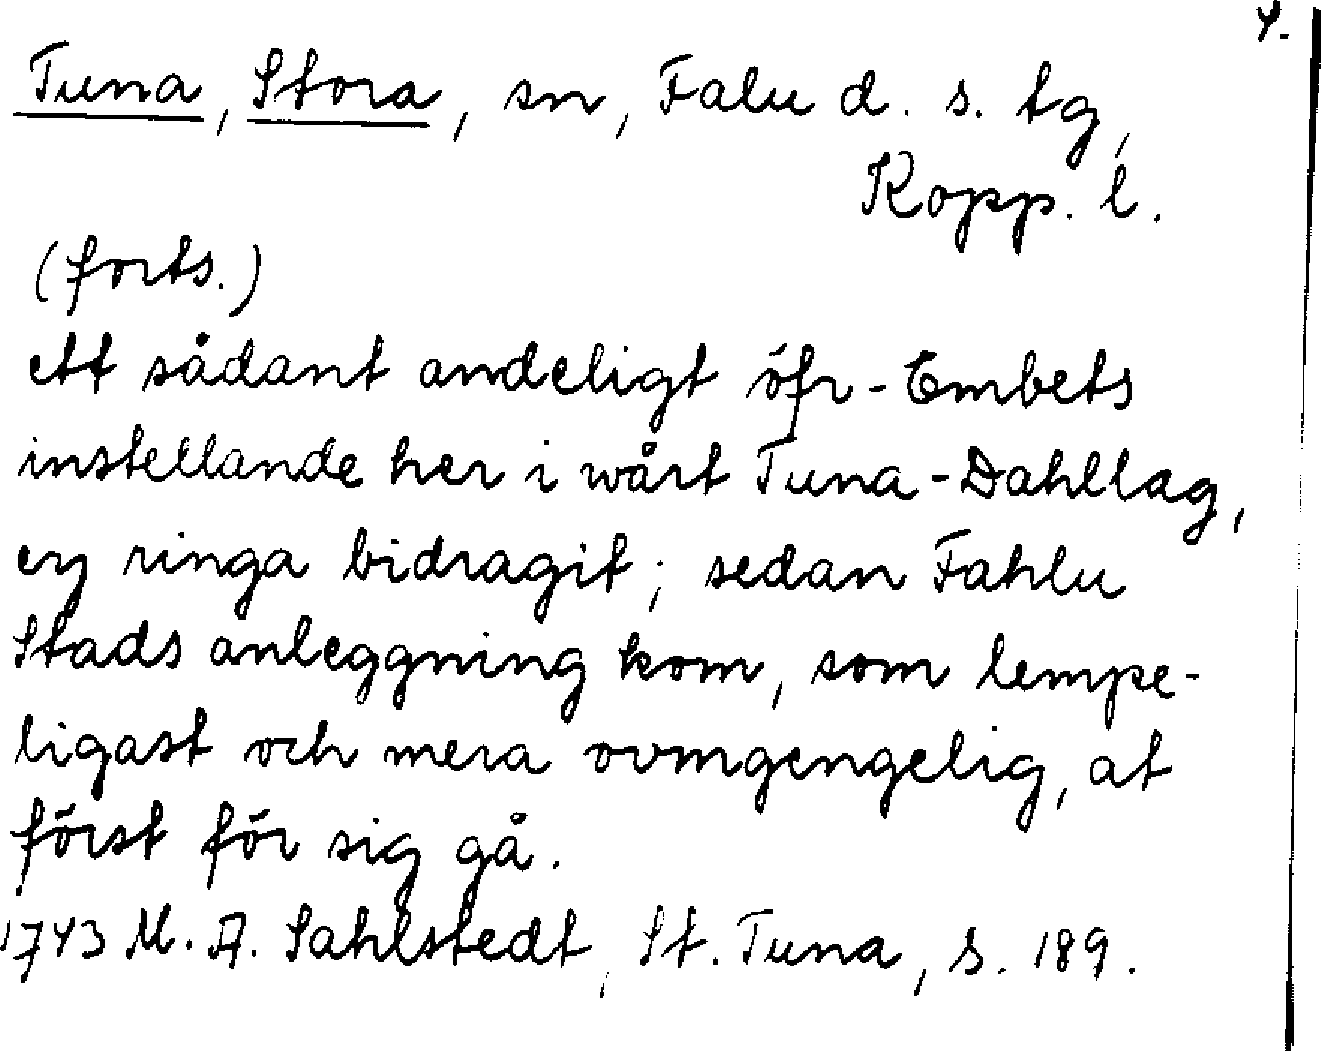 4.
Tuna, Stora, sn, Falu d. s. tg,
Kopp. l.
(forts.)
ett sådant andeligt öfr-Embets
instellande her i wårt Tuna-Dahllag,
ey ringa bidragit; sedan Fahlu
Stads anleggning kom, som lempe-
ligast och mera ovmgengelig, at
först för sig gå.
1743 M. A. Sahlstedt, St. Tuna, s. 189.